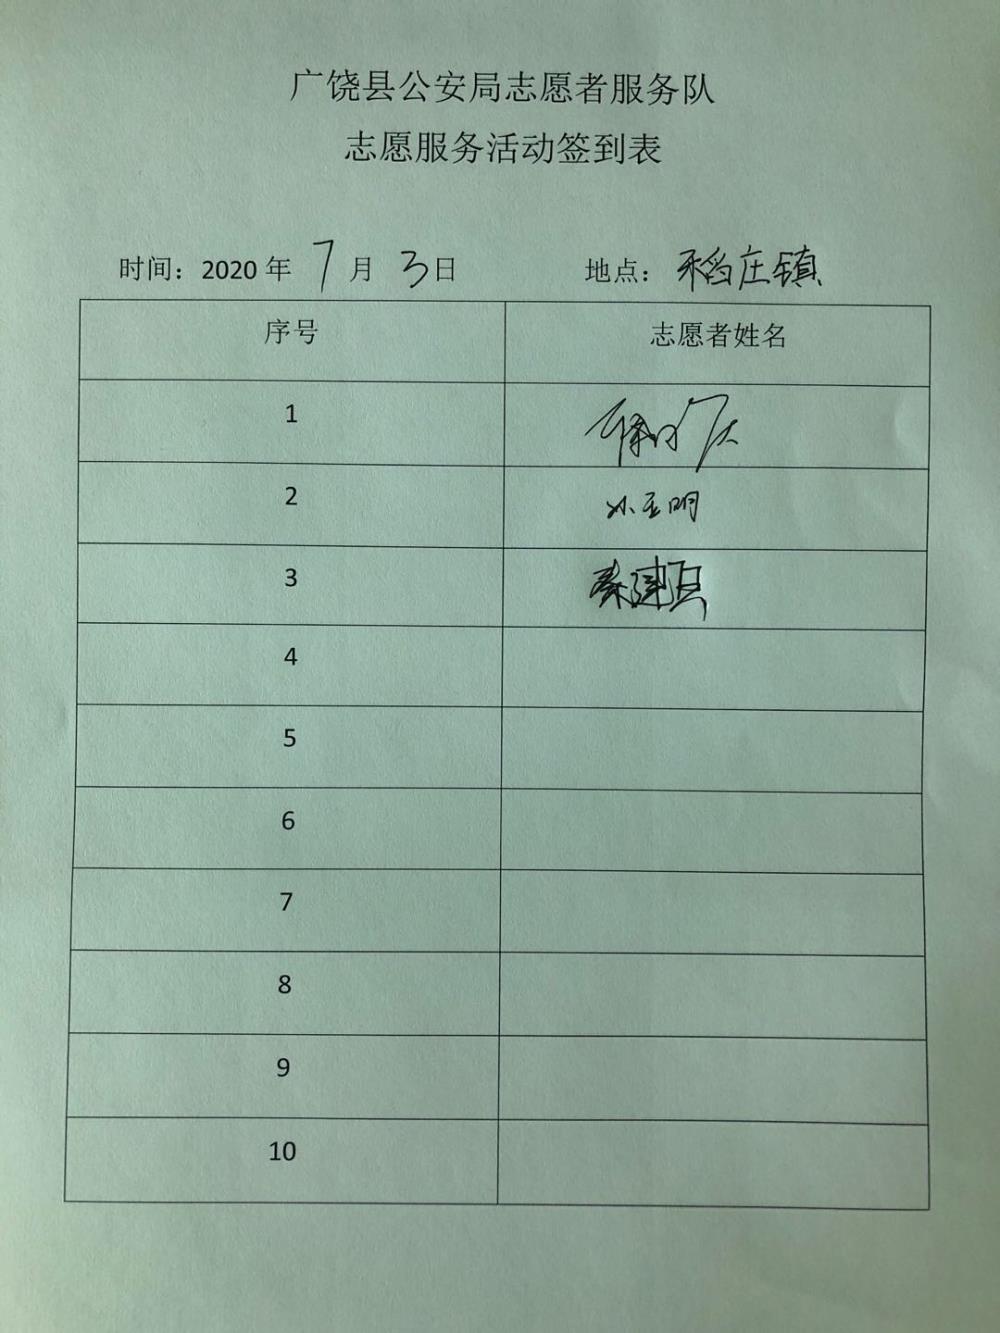 广饶县公安局志愿者服务队
志愿服务活动签到表
时间：2020 年 7 月 3日 地点：稻庄镇
序号 志愿者姓名
1
2 孙玉明
3 秦建
4
5
6
7
8
9
10